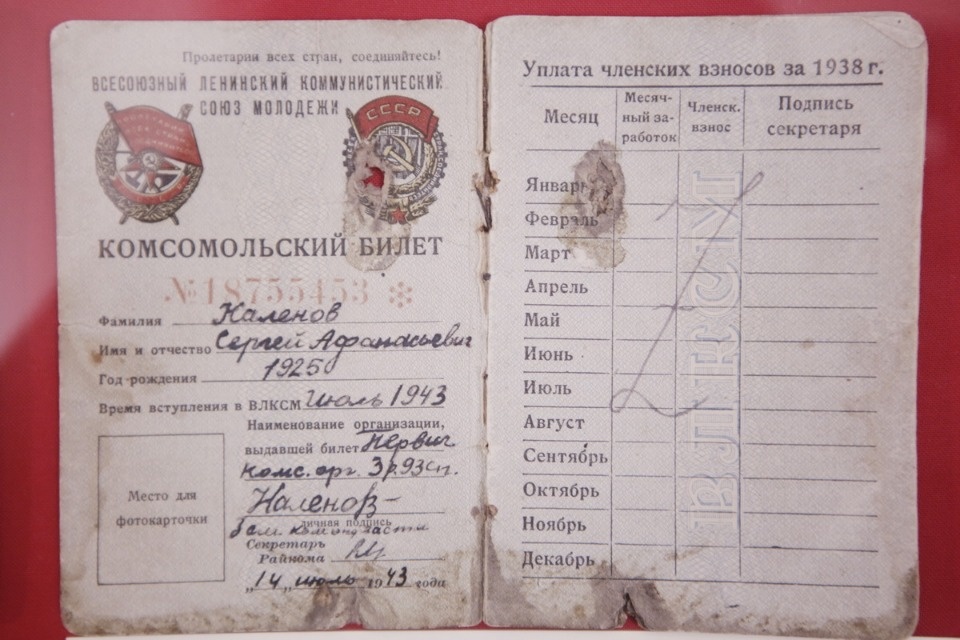 Пролетарии всех стран, соединяйтесь!
ВСЕСОЮЗНЫЙ ЛЕНИНСКИЙ КОММУНИСТИЧЕСКИЙ
СОЮЗ МОЛОДЕЖИ
СССР
КОМСОМОЛЬСКИЙ БИЛЕТ
№18755453
Фамилия Каленов
Имя и отчество Сергей Афанасьевич
Год рождения 1925
Время вступления в ВЛКСМ Июль 1943
Наименование организации,
выдавшей билет Первич
комс. орг. 3р. 93сп.
Каленов
личная подпись
Секретарь
Райкома
Место для
фотокарточки
"14" июль 1943 года
Уплата членских взносов за 1938 г.
Месяц
Месяч-
ный за-
работок
Членск.
взнос
Подпись
секретаря
Январь
Февраль
Март
Апрель
Май
Июнь
Июль
Август
Сентябрь
Октябрь
Ноябрь
Декабрь
ВЛКСМ